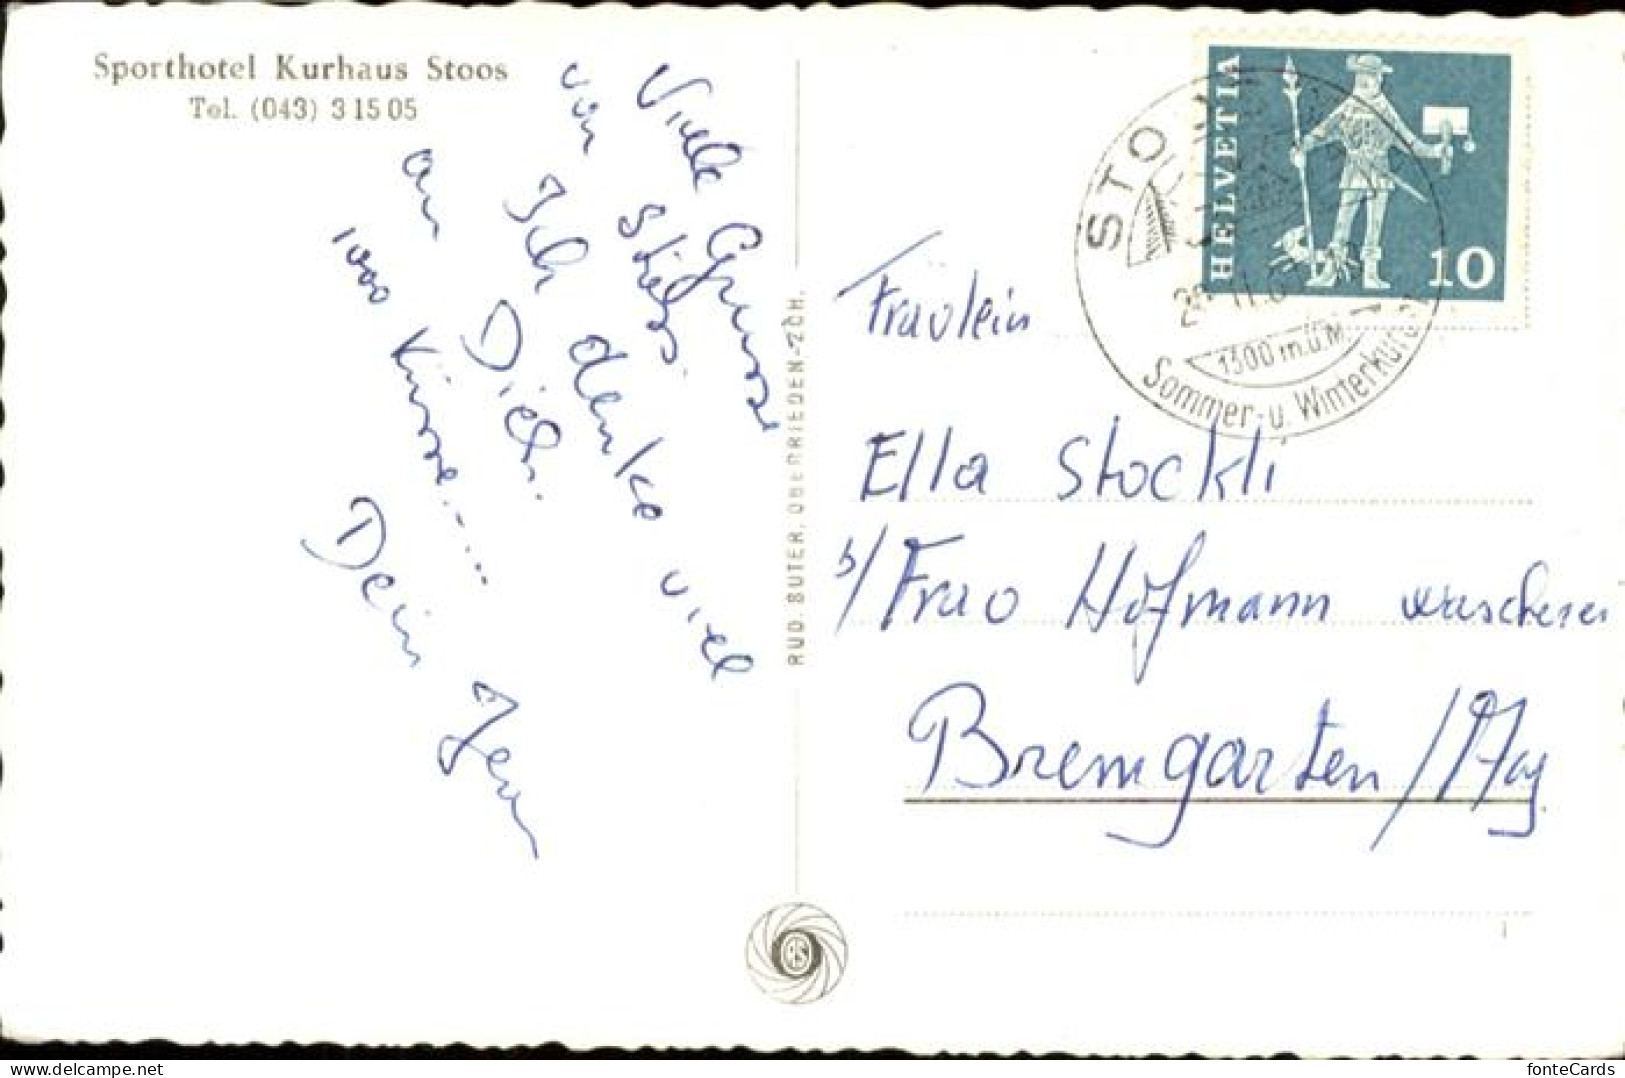 Sporthotel Kurhaus Stoos
Tel. (043) 3 15 05
Viele Grüsse
von Stoos.
Ich denke viel
an Dich.
1000 Küsse.....
Dein
RUD. SUTER, OBERRIEDEN-ZCH.
HELVETIA
10
STOOS
1300 m.ü.M.
Sommer- u. Winterkurort
Fräulein
Ella Stockli
b/Frau Hofmann wascherei
Bremgarten/Aag
RS
delcampe.net
fonteCards